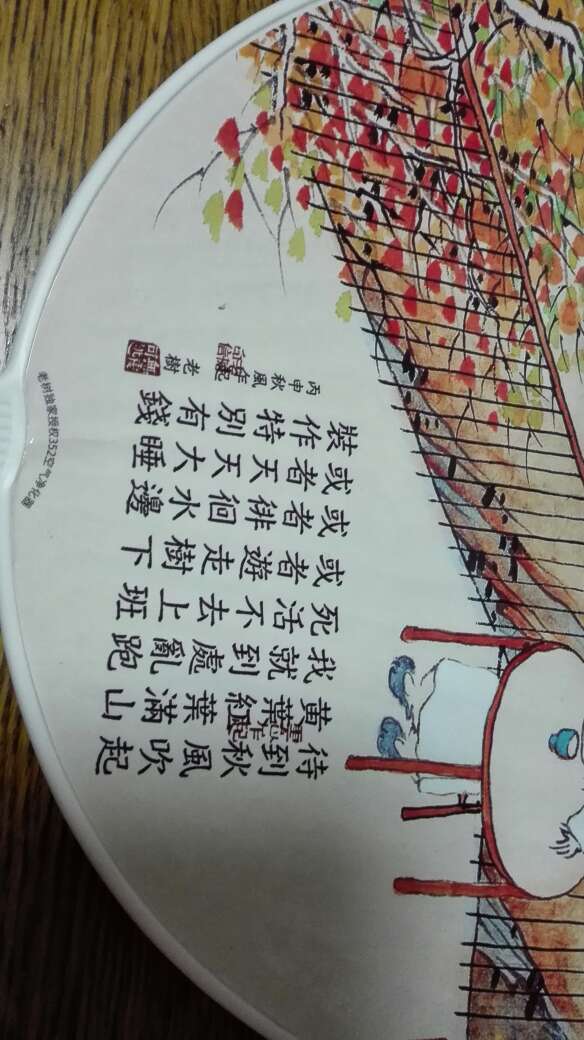 待到秋風吹起
黃葉紅葉滿山
我就到處亂跑
死活不去上班
或者遊走樹下
或者徘徊水邊
或者天天大睡
裝作特別有錢
丙申秋風老樹
老树独家授权352空气净化器